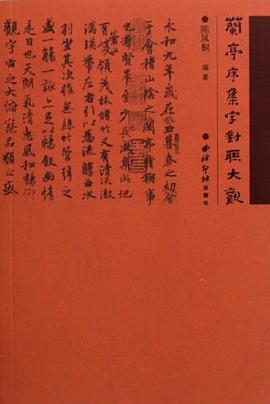 蘭亭序集字對聯大觀
陈凤桐 编著
西泠印社出版社
永和九年歲在癸丑暮春之初會
于會稽山陰之蘭亭脩稧事
也羣賢畢至少長咸集此地
有崇山峻領茂林脩竹又有清流激
湍暎帶左右引以為流觴曲水
列坐其次雖無絲竹管弦之
盛一觴一詠上足以暢叙幽情
是日也天朗氣清惠風和暢仰
觀宇宙之大俯察品類之盛